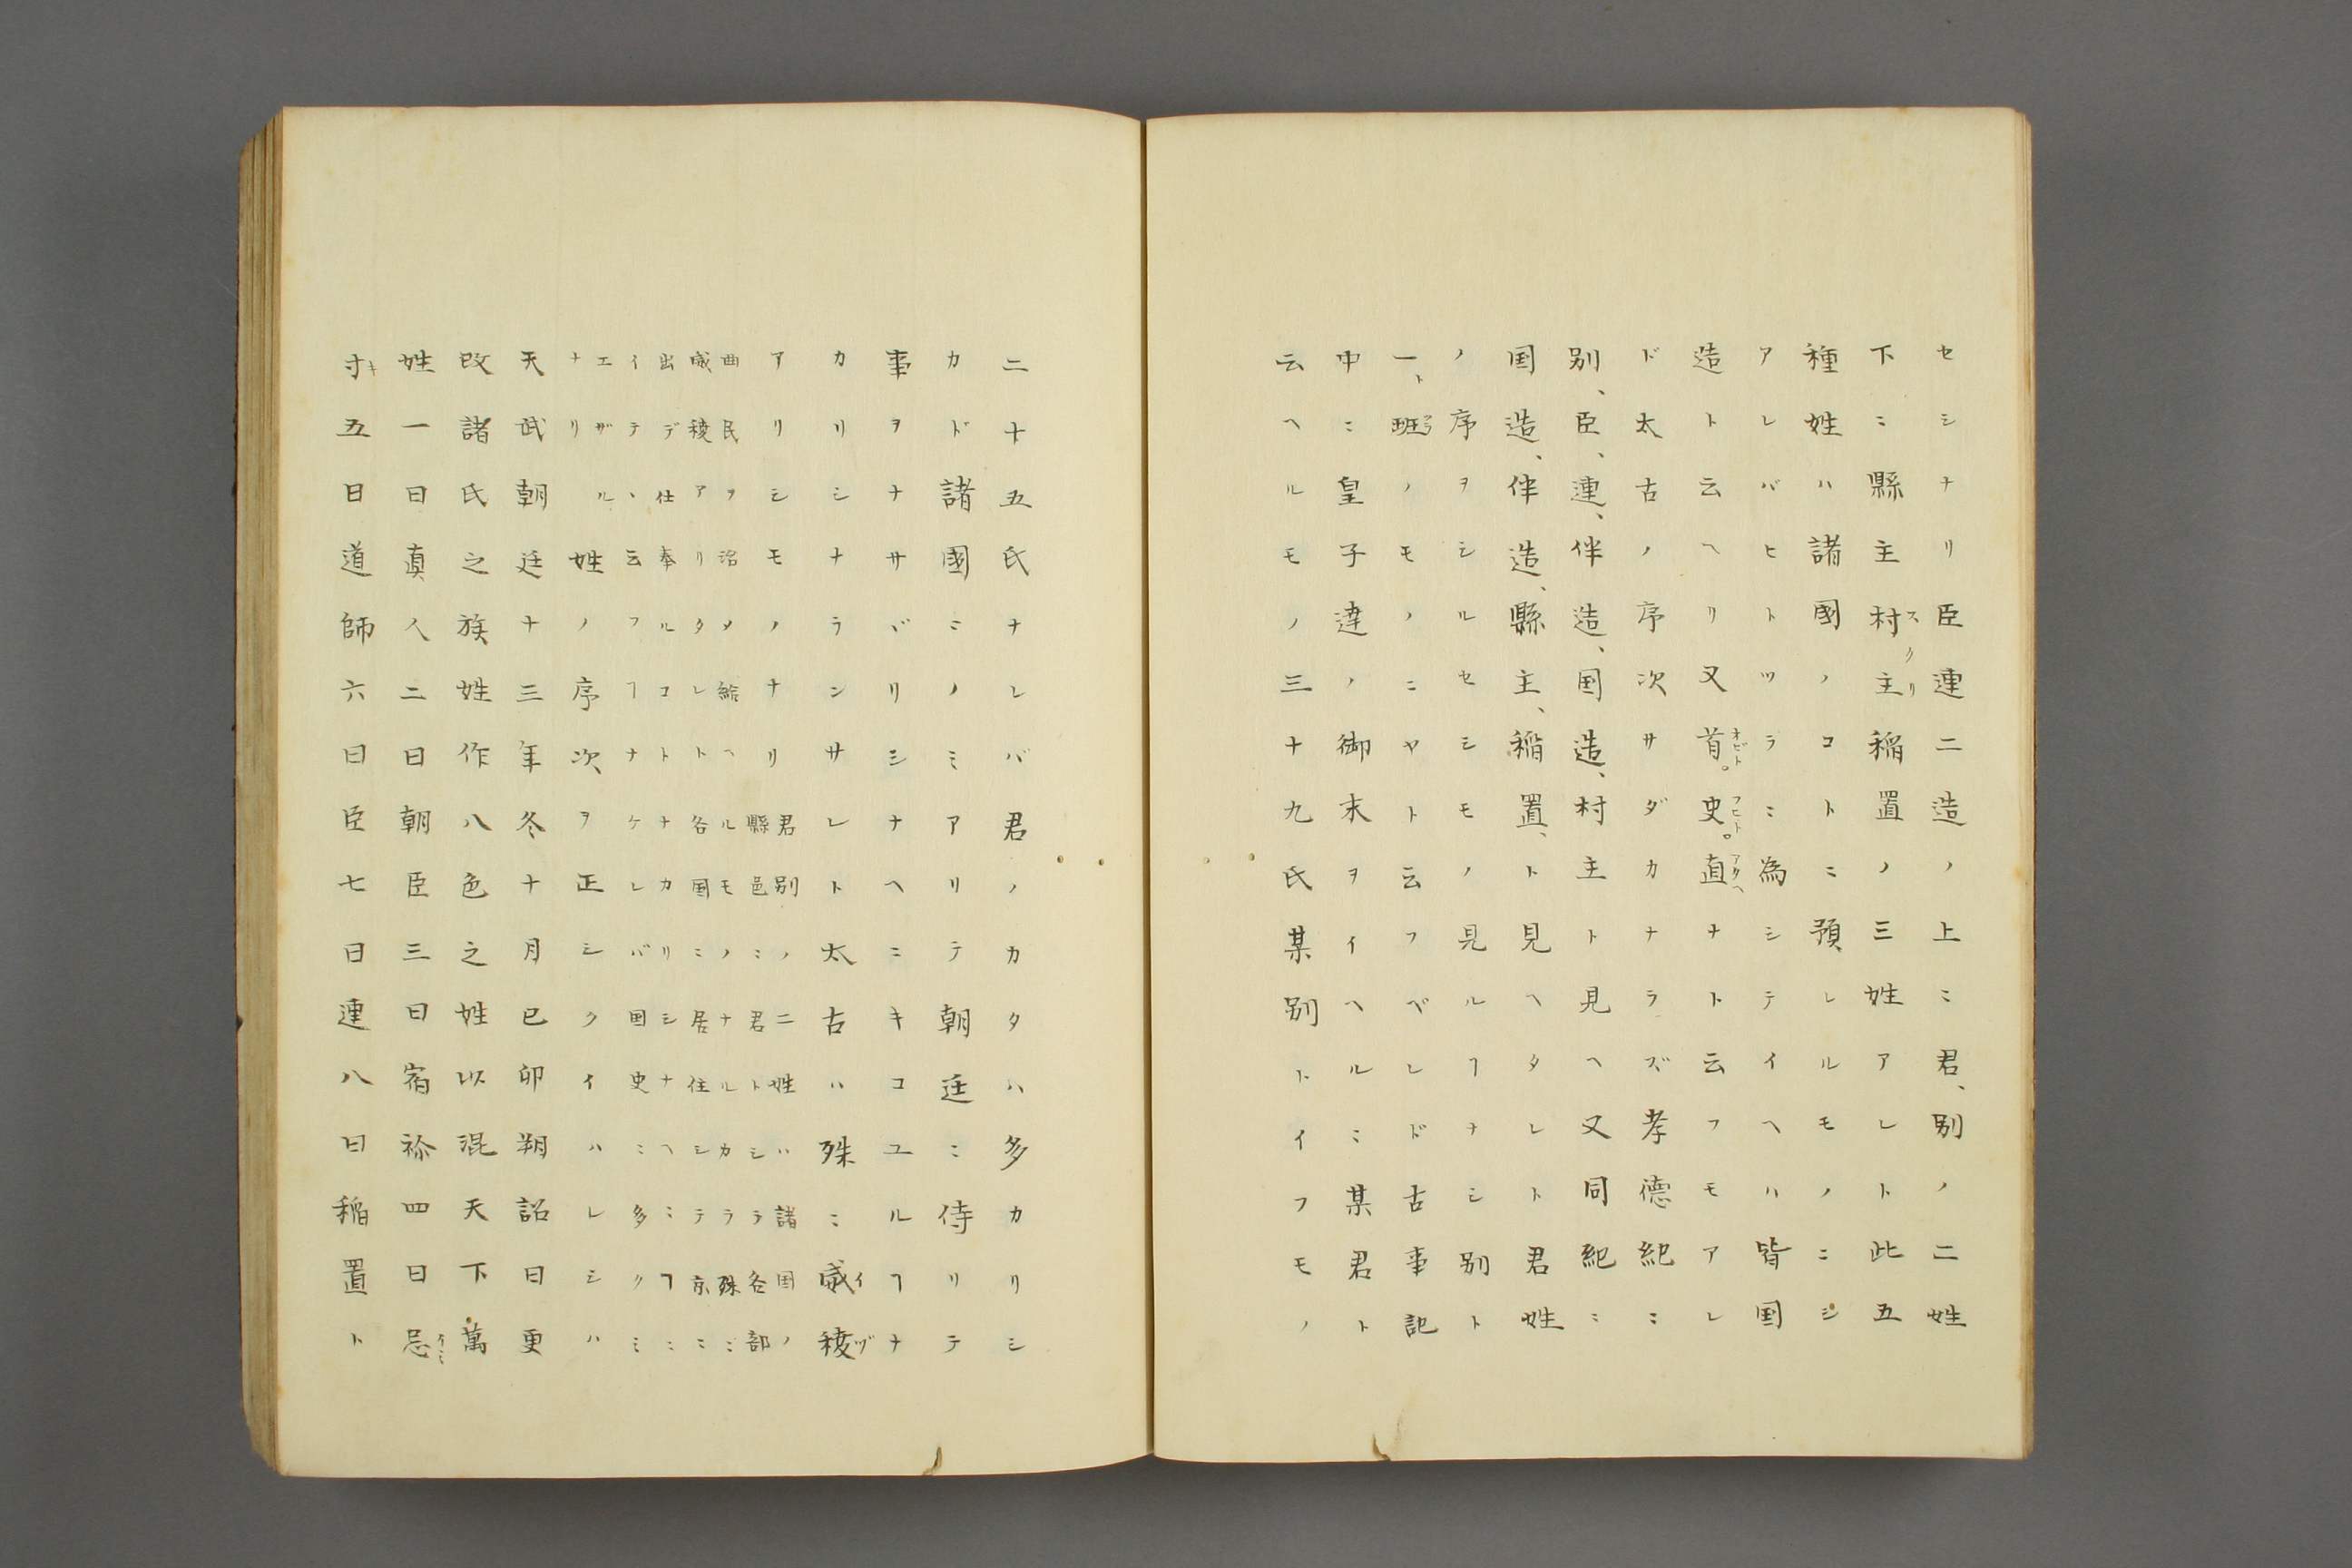 セシナリ臣連二造ノ上ニ君、別ノ二姓
下ニ縣主村主稲置ノ三姓アレト此五
種姓ハ諸國ノコトニ預レルモノニシ
アレバヒトツラニ為シテイヘハ皆国
造ト云ヘリ又首。史。直ナト云フモアレ
ド太古ノ序次サダカナラズ孝徳紀ニ
別、臣、連、伴造、国造、村主ト見ヘ又同紀ニ
国造、伴造、縣主、稲置、ト見ヘタレト君姓
ノ序ヲシルセシモノ見ルヿナシ別ト
一班ノモノニヤト云フベレド古事記
中ニ皇子達ノ御末ヲイヘルニ某君ト
云ヘルモノ三十九氏某別トイフモノ
二十五氏ナレバ君ノカタハ多カリシ
カド諸國ニノミアリテ朝廷ニ侍リテ
事ヲナサバリシナヘニキコユルヿナ
カリシナランサレト太古ハ殊ニ威稜
アリシモノナリ君別ノ二姓ハ諸国ノ
縣邑ニ君トシラ各部
曲民ヲ治メ給ヘルモノナルカラ殊ニ
威稜アリタレト各国ニ居住シテ京ニ
出デ仕奉ルコトナカリシナヘニヿニ
イテ、云フヿナケレバ国史ニ多クミ
エザル
ナリ姓ノ序次ヲ正シクイハレシハ
天武朝廷十三年冬十月己卯朔詔曰更
改諸氏之族姓作八色之姓以混天下萬
姓一曰真人二曰朝臣三曰宿祢四曰忌
寸五曰道師六曰臣七曰連八曰稲置ト